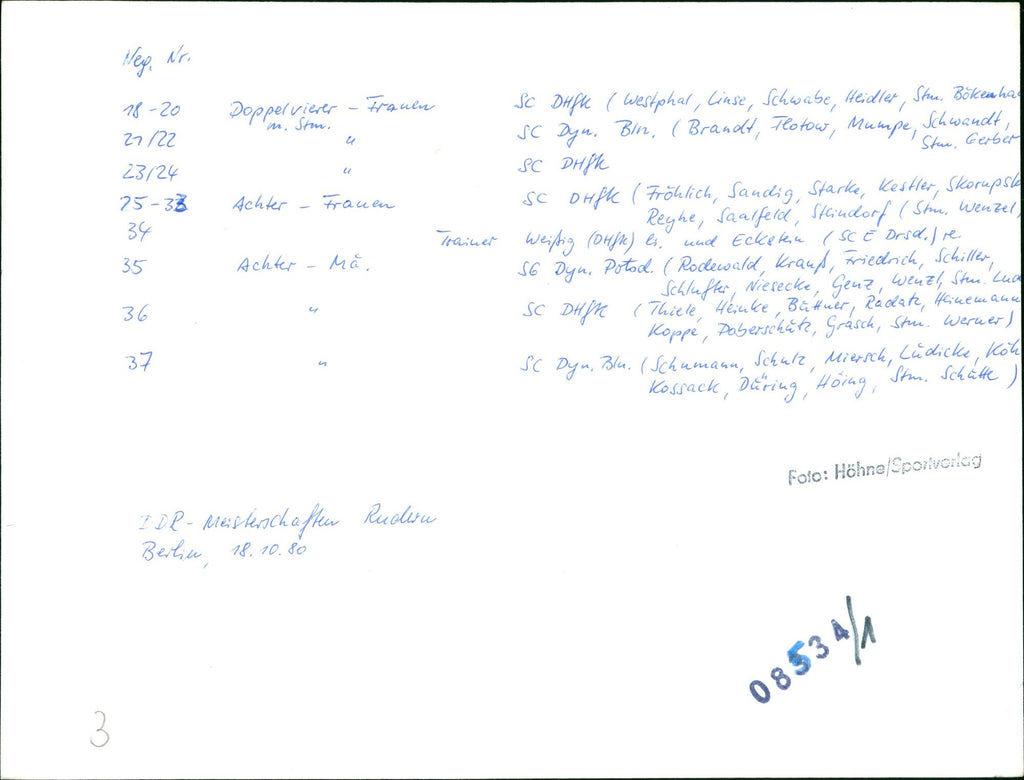 Neg. Nr.
18-20 Doppelvierer - Frauen SC DHfK (Westphal, Linse, Schwabe, Heidler, Stm. Bökenha
m. Stm.
21/22 " SC Dyn. Bln. (Brandt, Flotow, Mumpe, Schwandt,
Stm. Gerber
23/24 " SC DHfK
25-33 Achter - Frauen SC DHfK (Fröhlich, Sandig, Starke, Kestler, Skorupsk
Reyhe, Saalfeld, Steindorf (Stm. Wenzel,
34 Trainer Weißig (DHfK) li. und Eckstein (SC E Drsd.) re.
35 Achter - Mä. SG Dyn. Potsd. (Rodewald, Krauß, Friedrich, Schiller,
Schlufter, Niesecke, Genz, Wenzl, Stm. Lud
36 " SC DHfK (Thiele, Heinke, Büttner, Radatz, Heinemann
Koppe, Doberschütz, Grasch, Stm. Werner)
37 " SC Dyn. Bln. (Schumann, Schulz, Miersch, Lüdicke, Köh
Kossack, Düring, Höing, Stm. Schütte)
Foto: Höhne/Sportverlag
DDR-Meisterschaften Rudern
Berlin, 18.10.80
08534/1
3